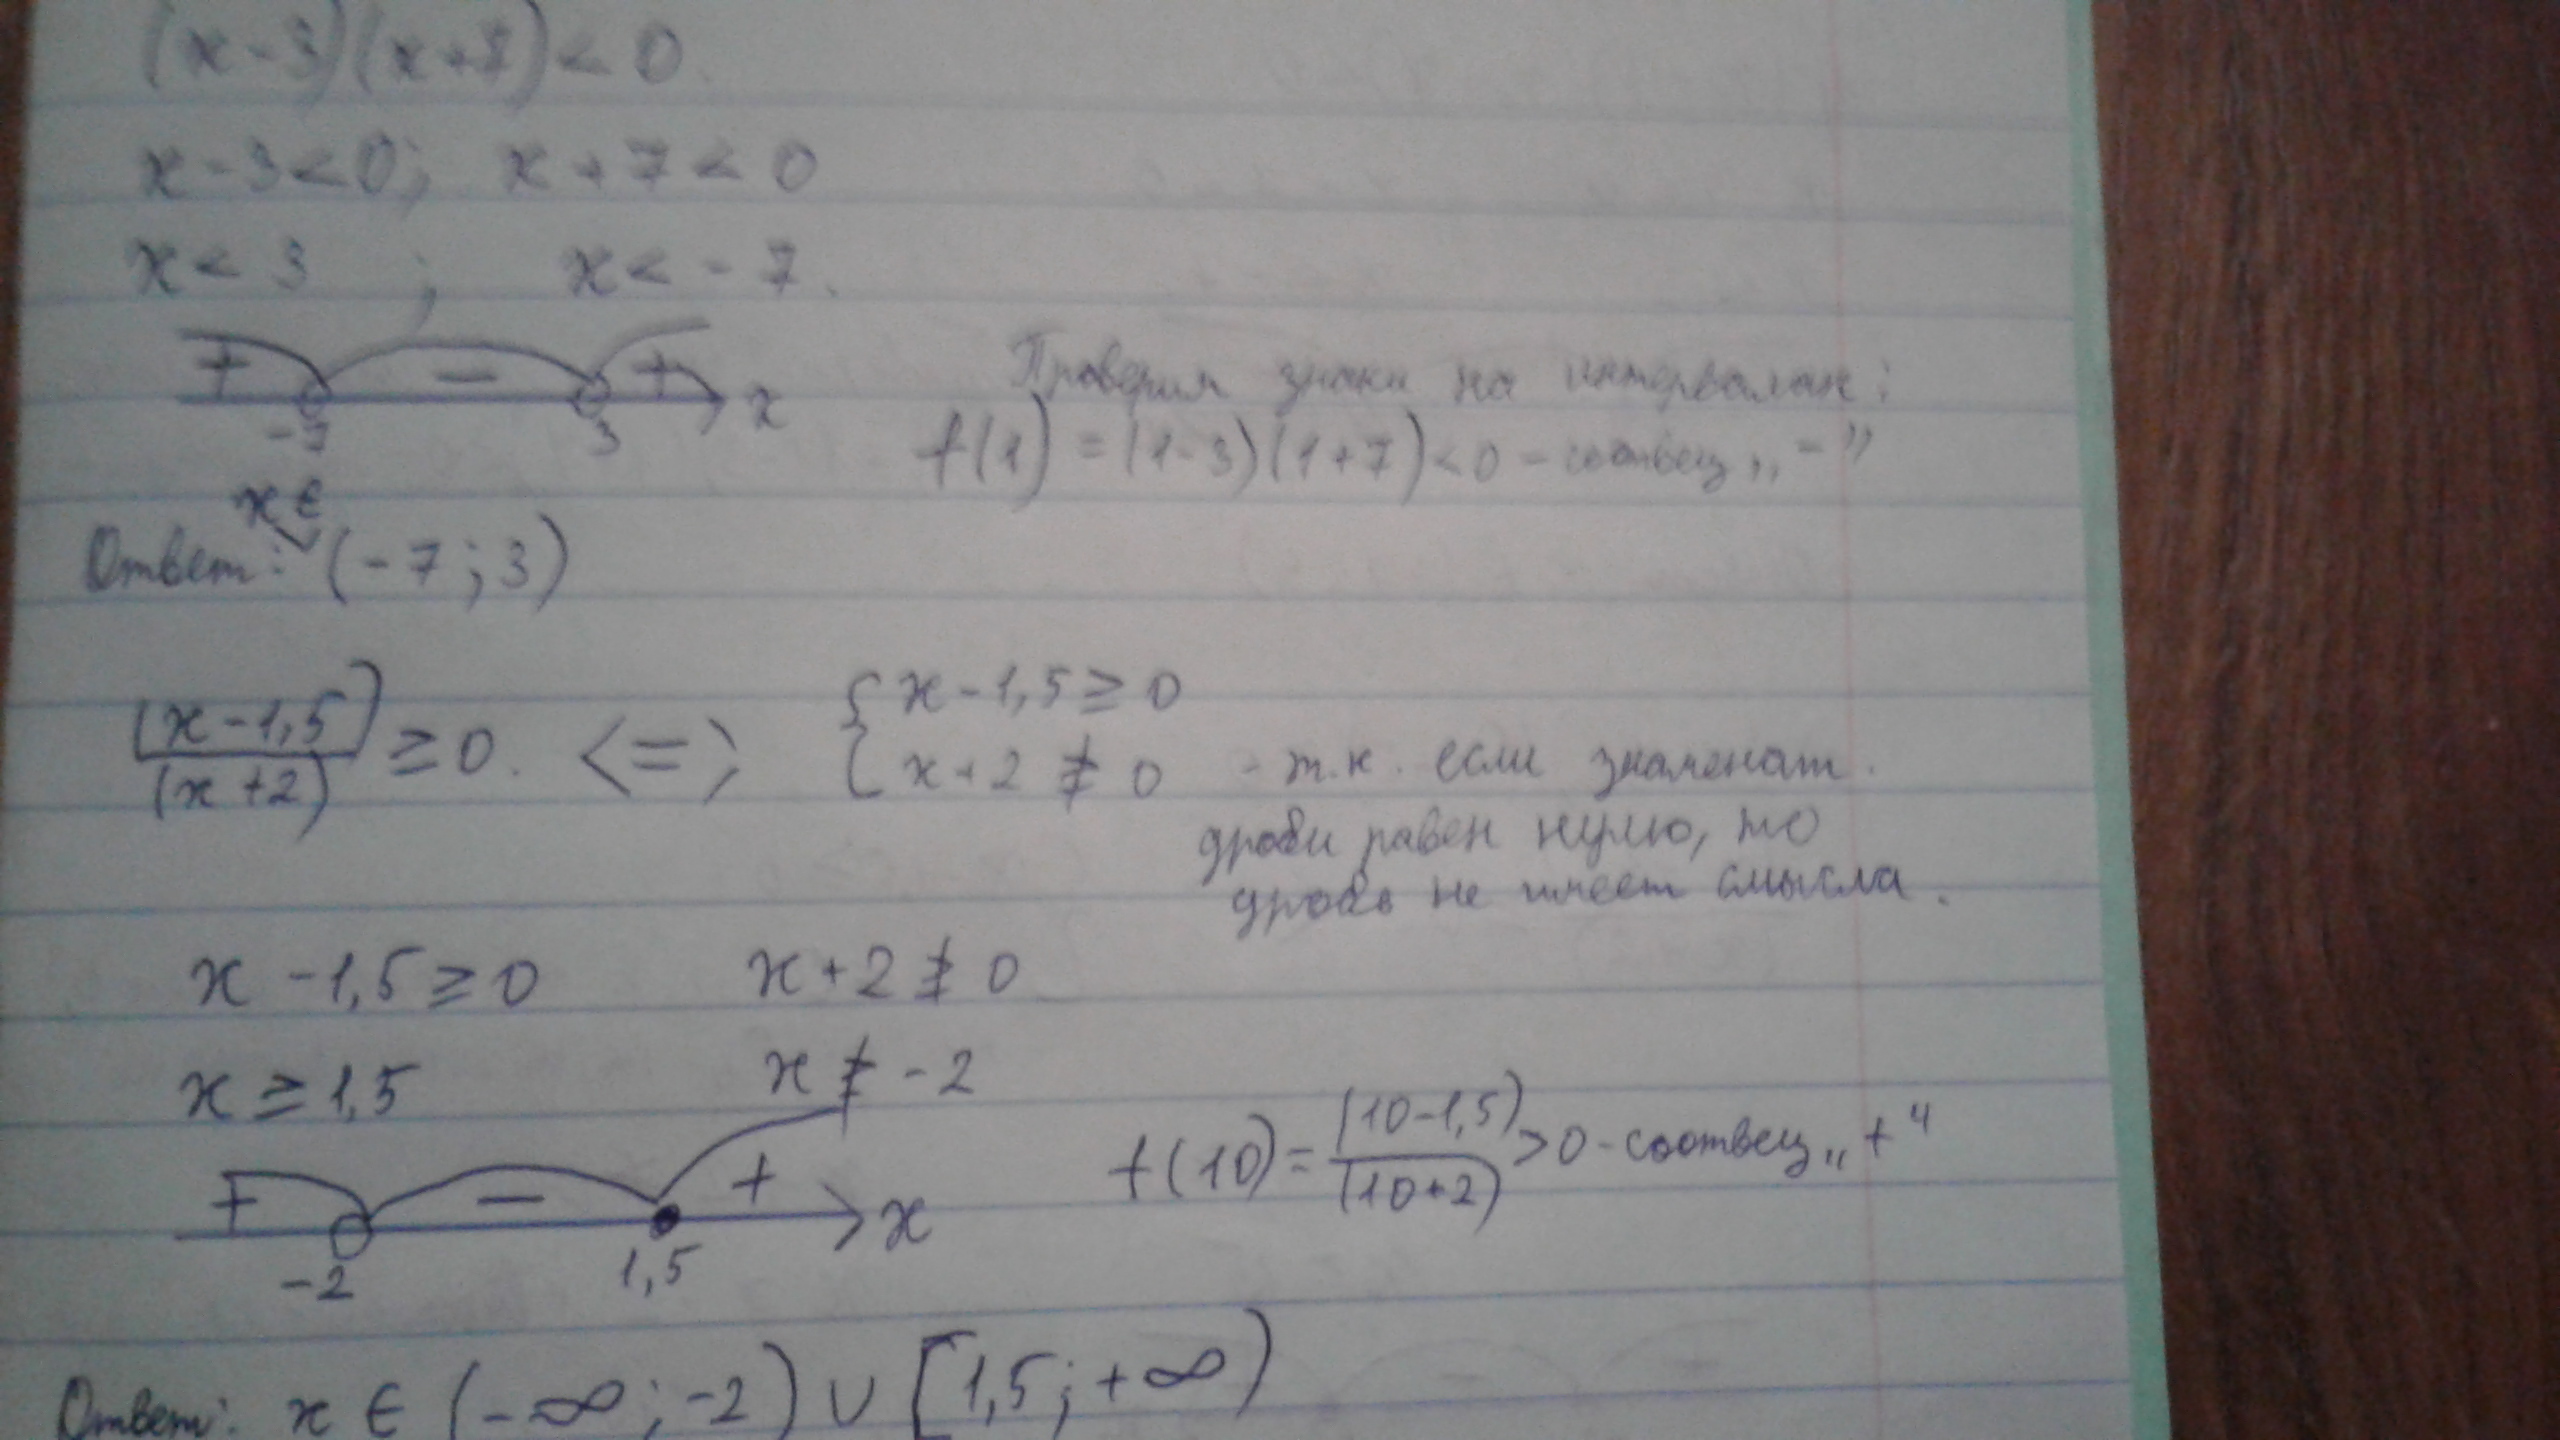 (x-3)(x+7)<0.
x-3<0; x+7<0
x<3 ; x<-7.
+ - + x
-7 3
Проверим знаки на интервалах:
f(1) = (1-3)(1+7)<0 - соотвец „-”
x ∈
Ответ: (-7; 3)
(x-1,5)/(x+2) ≥ 0. <=> { x-1,5 ≥ 0
x+2 ≠ 0 - т.к. если знаменат.
дроби равен нулю, то
дробь не имеет смысла.
x-1,5 ≥ 0 x+2 ≠ 0
x ≥ 1,5 x ≠ -2
+ - + x
-2 1,5
f(10) = (10-1,5)/(10+2) >0 - соотвец „+"
Ответ: x ∈ (-∞; -2) ∪ [1,5; +∞)